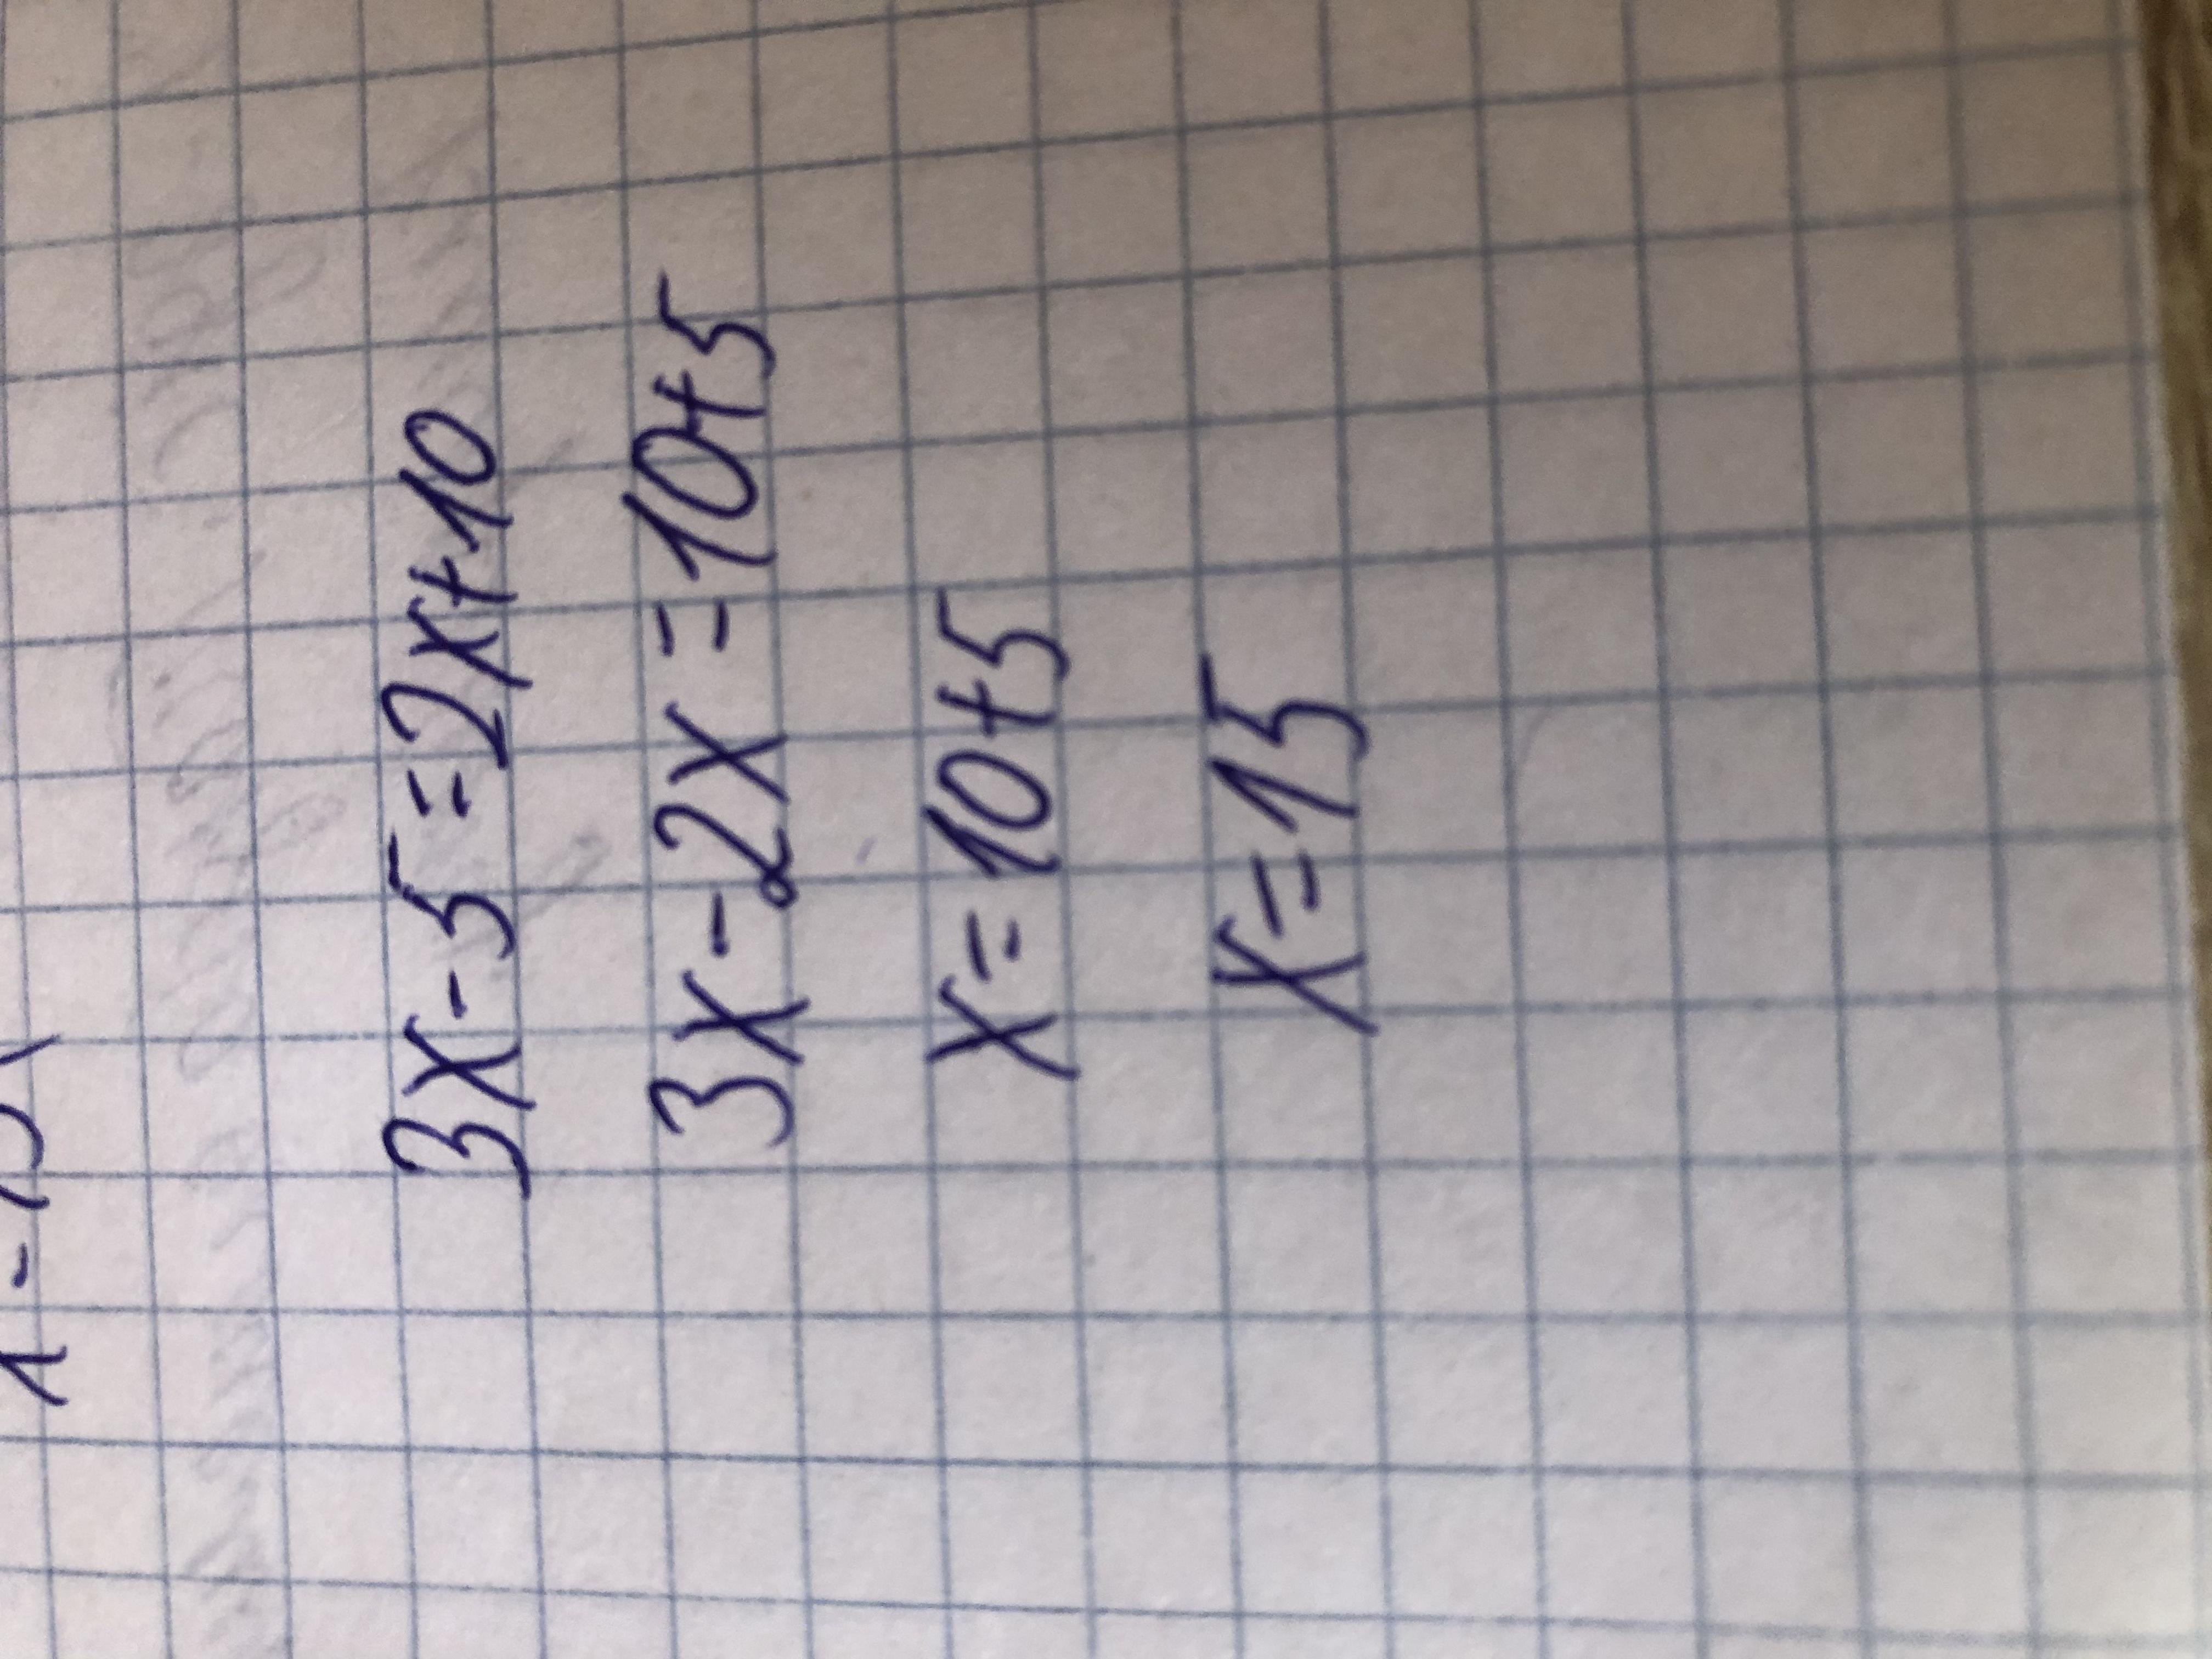 3x-5=2x+10
3x-2x=10+5
x=10+5
x=15